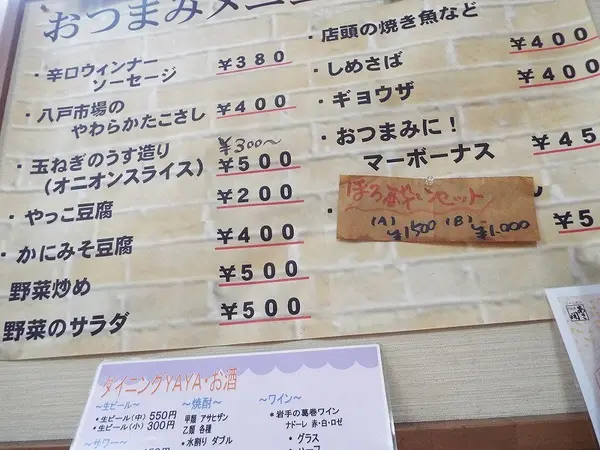 おつまみメニュー
・辛口ウィンナー
ソーセージ
¥380
・八戸市場の
やわらかたこさし
¥400
¥300〜
・玉ねぎのうす造り
(オニオンスライス)
¥500
・やっこ豆腐
¥200
・かにみそ豆腐
¥400
野菜炒め
¥500
野菜のサラダ
¥500
・店頭の焼き魚など
¥400
・しめさば
¥400
・ギョウザ
・おつまみに!
マーボーナス
¥45
ほろ酔いセット
(A) ¥1500 (B) ¥1,000
¥5
ダイニングYAYA・お酒
〜生ビール〜
・生ビール(中) 550円
・生ビール(小) 300円
〜サワー〜
〜焼酎〜
甲類 アサヒザン
乙類 各種
・水割り ダブル
〜ワイン〜
* 岩手の葛巻ワイン
ナドーレ 赤・白・ロゼ
・グラス
・ハーフ